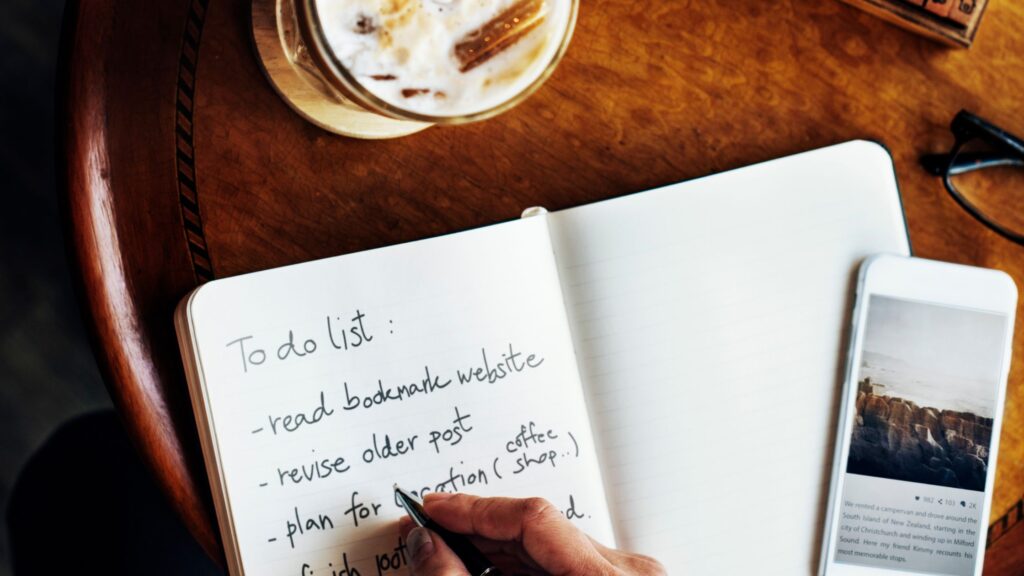 To do list :
- read bookmark website
- revise older post
- plan for (coffee shop..)
982 103 2K
We rented a campervan and drove around
South Island of New Zealand, starting in the
city of Christchurch and winding up in Milford
Sound. Here my friend Kimmy recounts his
most memorable stops.